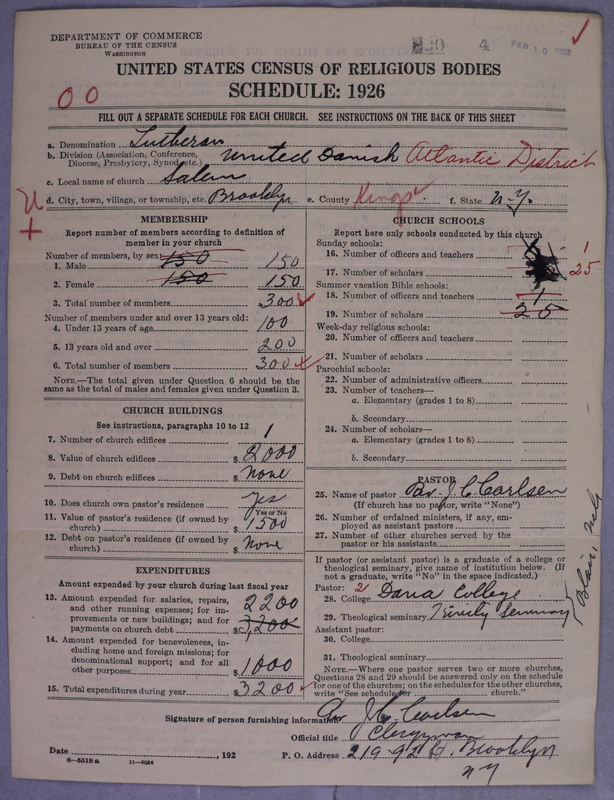 DEPARTMENT OF COMMERCE
BUREAU OF THE CENSUS
WASHINGTON
4 FEB 10
UNITED STATES CENSUS OF RELIGIOUS BODIES
SCHEDULE: 1926
00
FILL OUT A SEPARATE SCHEDULE FOR EACH CHURCH. SEE INSTRUCTIONS ON THE BACK OF THIS SHEET
a. Denomination Lutheran
b. Division (Association, Conference, Diocese, Presbytery, Synod, etc.) United Danish Atlantic District
c. Local name of church Salem
d. City, town, village, or township, etc. Brooklyn e. County Kings f. State N.Y.
MEMBERSHIP
Report number of members according to definition of
member in your church
Number of members, by sex:
1. Male 150 150
2. Female 150 150
3. Total number of members 300
Number of members under and over 13 years old:
4. Under 13 years of age 100
5. 13 years old and over 200
6. Total number of members 300
NOTE.—The total given under Question 6 should be the
same as the total of males and females given under Question 3.
CHURCH BUILDINGS
See instructions, paragraphs 10 to 12
7. Number of church edifices 1
8. Value of church edifices $ 8000
9. Debt on church edifices $ None
10. Does church own pastor's residence? Yes
Yes or No
11. Value of pastor's residence (if owned by
church) $ 1500
12. Debt on pastor's residence (if owned by
church) $ None
EXPENDITURES
Amount expended by your church during last fiscal year
13. Amount expended for salaries, repairs,
and other running expenses; for improvements
or new buildings; and for
payments on church debt $ 2200 3,200
14. Amount expended for benevolences, including
home and foreign missions; for
denominational support; and for all
other purposes $ 1000
15. Total expenditures during year $ 3200
CHURCH SCHOOLS
Report here only schools conducted by this church
Sunday schools:
16. Number of officers and teachers 1
17. Number of scholars 25
Summer vacation Bible schools:
18. Number of officers and teachers 1
19. Number of scholars 25
Week-day religious schools:
20. Number of officers and teachers
21. Number of scholars
Parochial schools:
22. Number of administrative officers
23. Number of teachers—
a. Elementary (grades 1 to 8)
b. Secondary
24. Number of scholars—
a. Elementary (grades 1 to 8)
b. Secondary
PASTOR
25. Name of pastor J. C. Carlsen
(If church has no pastor, write "None")
26. Number of ordained ministers, if any, employed
as assistant pastors
27. Number of other churches served by the
pastor or his assistants
If pastor (or assistant pastor) is a graduate of a college or
theological seminary, give name of institution below. (If
not a graduate, write "No" in the space indicated.)
Pastor: 2
28. College Dana College
29. Theological seminary Trinity Seminary
Blair, Neb
Assistant pastor:
30. College
31. Theological seminary
NOTE.—Where one pastor serves two or more churches,
Questions 28 and 29 should be answered only on the schedule
for one of the churches; on the schedules for the other churches,
write "See schedule for church."
Signature of person furnishing information J. C. Carlsen
Official title Clergyman
Date , 192 P. O. Address 219-92 St. Brooklyn
NY
8—5518a 11—9054